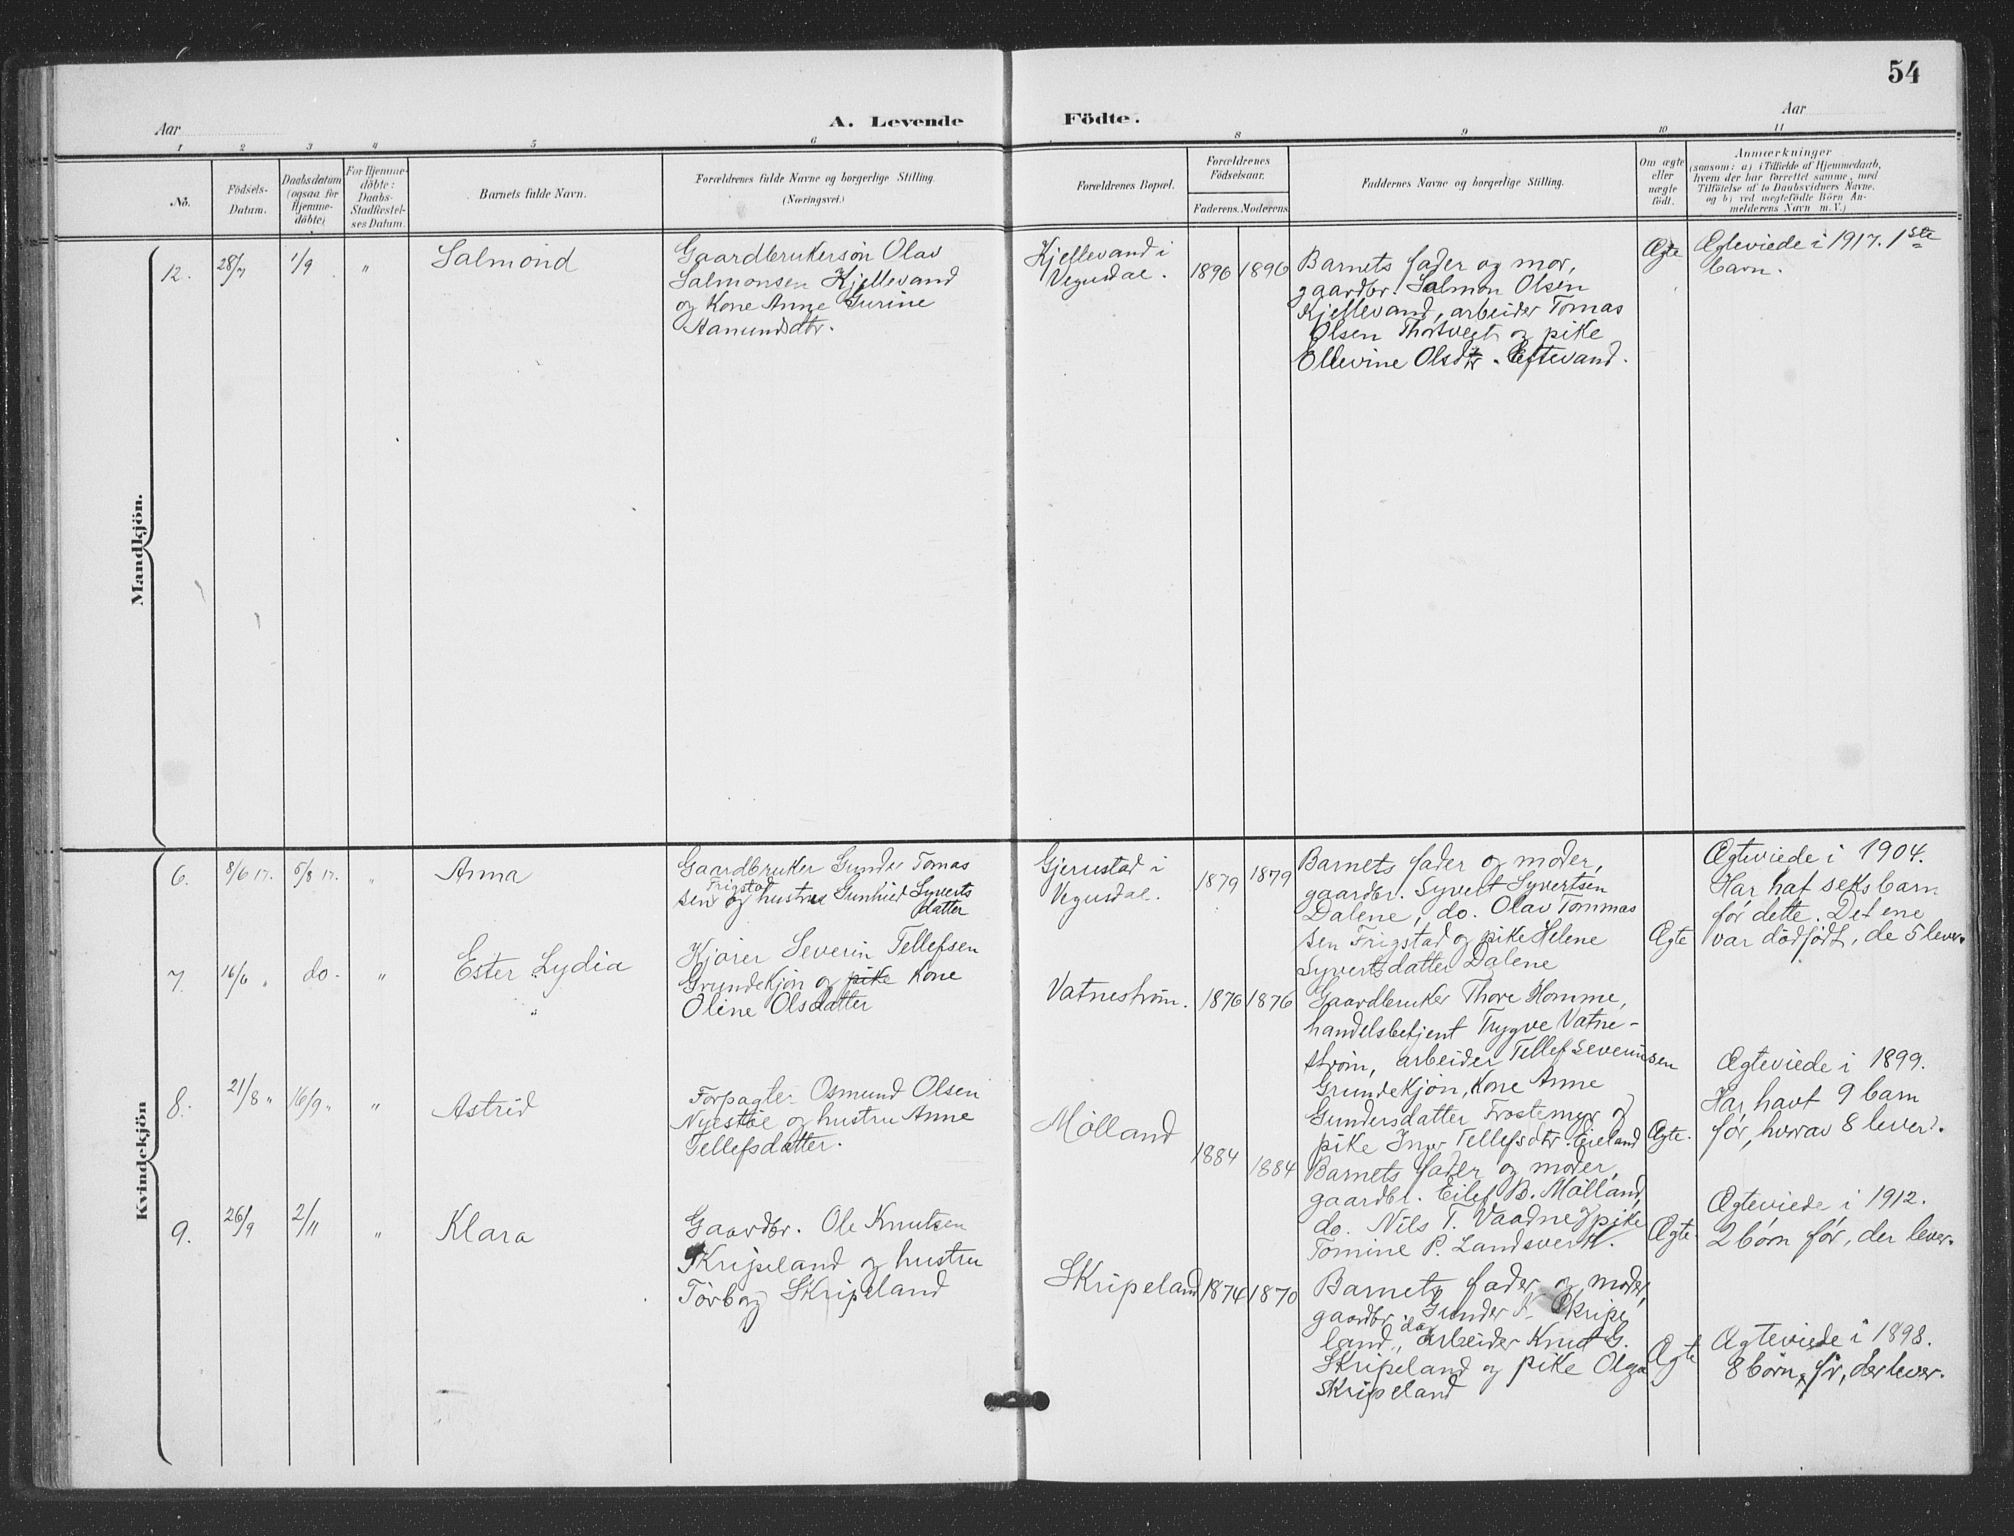 54
Aar
A. Levende
Födte.
Aar
1 2 3 4 5 6 8 9 10 11
No.
Födsels-
Datum.
Daabsdatum
(ogsaa for
Hjemme-
döbte)
For Hjemme-
döbte:
Daabs-
Stadfæstel-
ses Datum.
Barnets fulde Navn.
Forældrenes fulde Navne og borgerlige Stilling.
(Næringsvei.)
Forældrenes Bopæl.
Forældrenes
Födselsaar.
Faderens. Moderens
Faddernes Navne og borgerlige Stilling.
Om ægte
eller
uægte
födt.
Anmærkninger
(saasom: a) i Tilfælde af Hjemmedaab,
hvem der har forrettet samme, med
Tilföielse af to Daabsvidners Navne,
og b) ved uegtefödte Börn An-
melderens Navn m. V.)
Mandkjön.
12. 28/7 1/9 " Salmond
Gaardbrukersøn Olav
Salmonsen Kjellevand
og Kone Anne Gurine
Aamundsdtr.
Kjellevand i
Vegusdal.
1896 1896
Barnets fader og mor,
gaardbr. Salmon Olsen
Kjellevand, arbeider Tomas
Olsen Thortveit og pike
Ellevine Olsdtr. Eftevand.
Ægte
Ægteviede i 1917. 1ste
barn.
Kvindekjön
6. 8/6 17. 5/8 17. " Anna
Gaardbruker Gunder Tomas
sen Frigstad og hustru Gunhild Syverts
datter
Gjerustad i
Vegusdal.
1879 1879
Barnets fader og moder,
gaardbr. Syvert Syvertsen
Dalene, do. Olav Tommas
sen Frigstad og pike Helene
Syvertsdatter Dalene
Ægte
Ægteviede i 1904.
Har haf seks barn
før dette. Det ene
var dødfødt, de 5 lever.
7. 16/6 " do. " Ester Lydia
"
Kjører Severin Tellefsen
Grundekjøn og pike Kone
Oline Olsdatter
Vatnestrøm.
1876 1876
Gaardbruker Thore Homme,
handelsbetjent Trygve Vatne-
strøm, arbeider Tellef Severinsen
Grundekjøn, Kone Anne
Gundersdatter Frostemyr og
pike Inger Tellefsdtr. Eieland
Ægte.
Ægteviede i 1899.
Har havt 9 barn
før, hvorav 8 lever.
8. 21/8 " 16/9 " " Astrid
Forpagter Osmund Olsen
Nyestøl og hustru Anne
Tellefsdatter.
Mølland
1884 1884
Barnets fader og moder,
gaardbr. Eilef B. Mølland,
do. Nils T. Vaadne, pike
Tomine P. Landsverk.
Ægte.
Ægteviede i 1912.
2 børn før, der lever.
9. 26/9 2/11 " Klara
Gaardbr. Ole Knutsen
Skripeland og hustru
Tørborg Skripeland
Skripeland
1874 1870
Barnets fader og moder,
gaardbr. Gunder A. Skripe
land, arbeider Knut G.
Skripeland og pike Olga
Skripeland
Ægte
Ægteviede i 1898.
8 børn før, der lever.